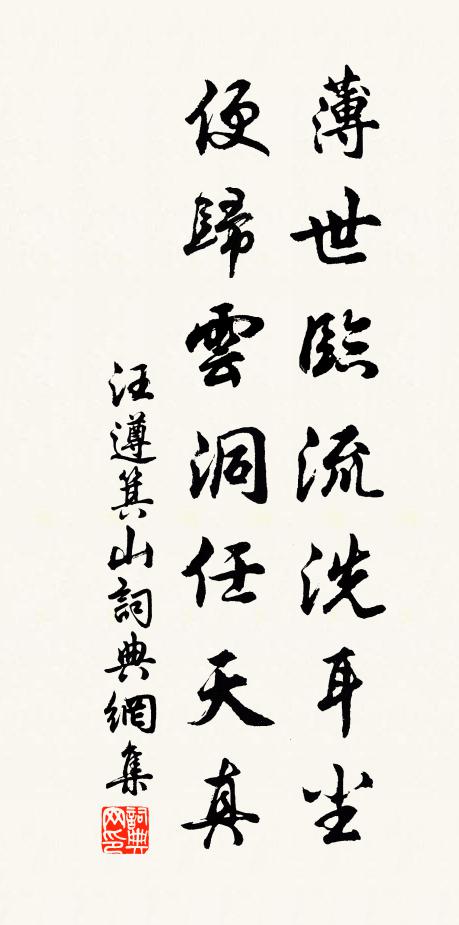 薄世臨流洗耳尘
便歸雲洞任天真
汪遵箕山詞典網集
詞典网印